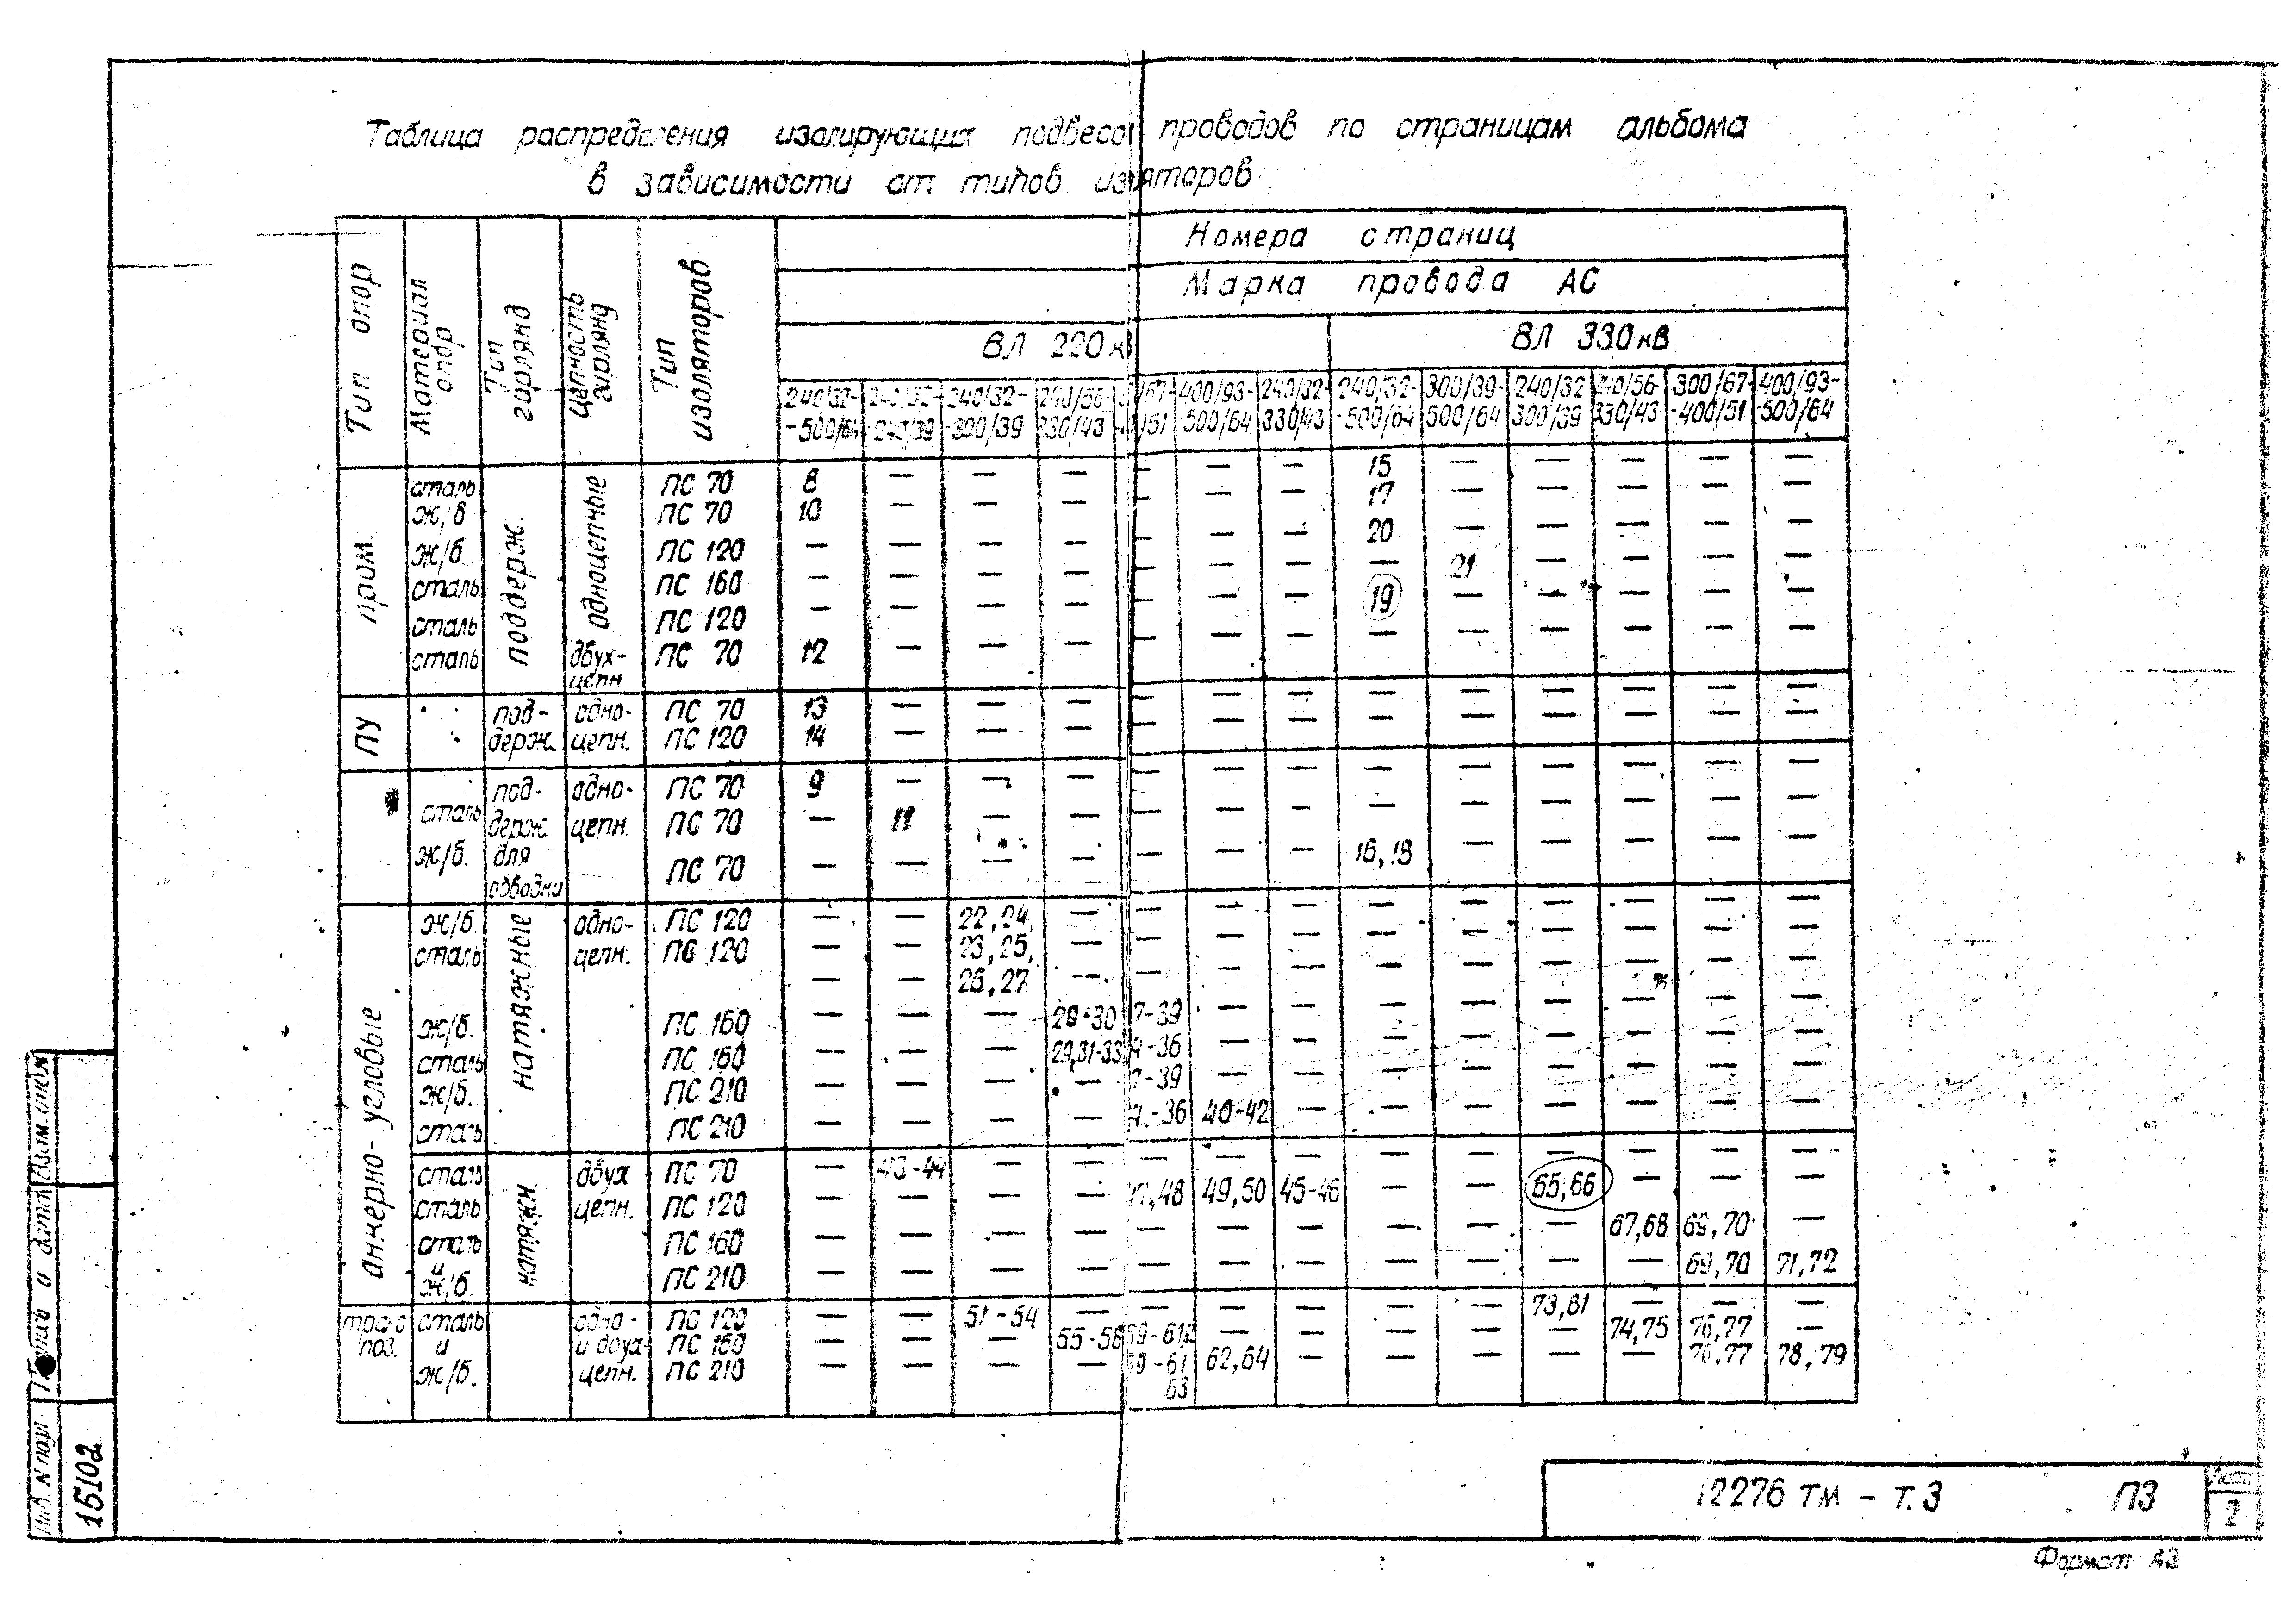 Таблица распределения изолирующих подвесок проводов по страницам альбома
в зависимости от типов изоляторов
Тип опор
Материал опор
Тип гирлянд
Цепность гирлянд
Тип изоляторов
Номера страниц
Марка провода АС
ВЛ 220 кВ
ВЛ 330 кВ
240/32- -500/64
240/32- -240/39
240/32- -300/39
240/56- 330/43
/67- /51
400/93- -500/64
240/32- 330/43
240/32- -500/64
300/39- 500/64
240/32 300/39
240/56- 330/43
300/67- -400/51
400/93- -500/64
пром.
поддерж.
одноцепные
сталь ПС 70 8 — — — — — — 15 — — — — —
ж/б. ПС 70 10 — — — — — — 17 — — — — —
ж/б. ПС 120 — — — — — — — 20 — — — — —
сталь ПС 160 — — — — — — — — 21 — — — —
сталь ПС 120 — — — — — — — 19 — — — — —
сталь двух- цепн ПС 70 12 — — — — — — — — — — — —
ПУ
под- одно- ПС 70 13 — — — — — — — — — — — —
держ. цепн. ПС 120 14 — — — — — — — — — — — —
под- одно- ПС 70 9 — — — — — — — — — — — —
сталь держ. цепн. ПС 70 — 11 — — — — — — — — — — —
ж/б. для ПС 70 — — — — — — — 16, 18 — — — — —
обводки
анкерно-угловые
натяжные
ж/б. одно- ПС 120 — — 22, 24, — — — — — — — — — —
сталь цепн. ПС 120 — — 23, 25, — — — — — — — — — —
— — 26, 27 — — — — — — — — — —
ж/б. ПС 160 — — — 28-30 7-39 — — — — — — — —
сталь ПС 160 — — — 29,31-33 4-36 — — — — — — — —
ж/б. ПС 210 — — — — 7-39 — — — — — — — —
сталь ПС 210 — — — — 4-36 40-42 — — — — — — —
натяжн.
сталь двух ПС 70 — 43-44 — — — — — — — — — — —
сталь цепн. ПС 120 — — — — 7,48 49,50 45-46 — — 65,66 — — —
сталь ПС 160 — — — — — — — — — — 67,68 69,70 —
и
ж/б. ПС 210 — — — — — — — — — — — 69,70 71,72
трасп сталь одно- ПС 120 — — 51-54 — — — — — — 73,81 — — —
поз. и и двух- ПС 160 — — — 55-58 59-61, — — — — — 74,75 76,77 —
ж/б. цепн. ПС 210 — — — — 59-61 62,64 — — — — — 76,77 78,79
63
12276 ТМ - Т.3 ПЗ
Лист
2
Формат А3
Взам. инв. №
Подпись и дата
Инв. № подл
15102